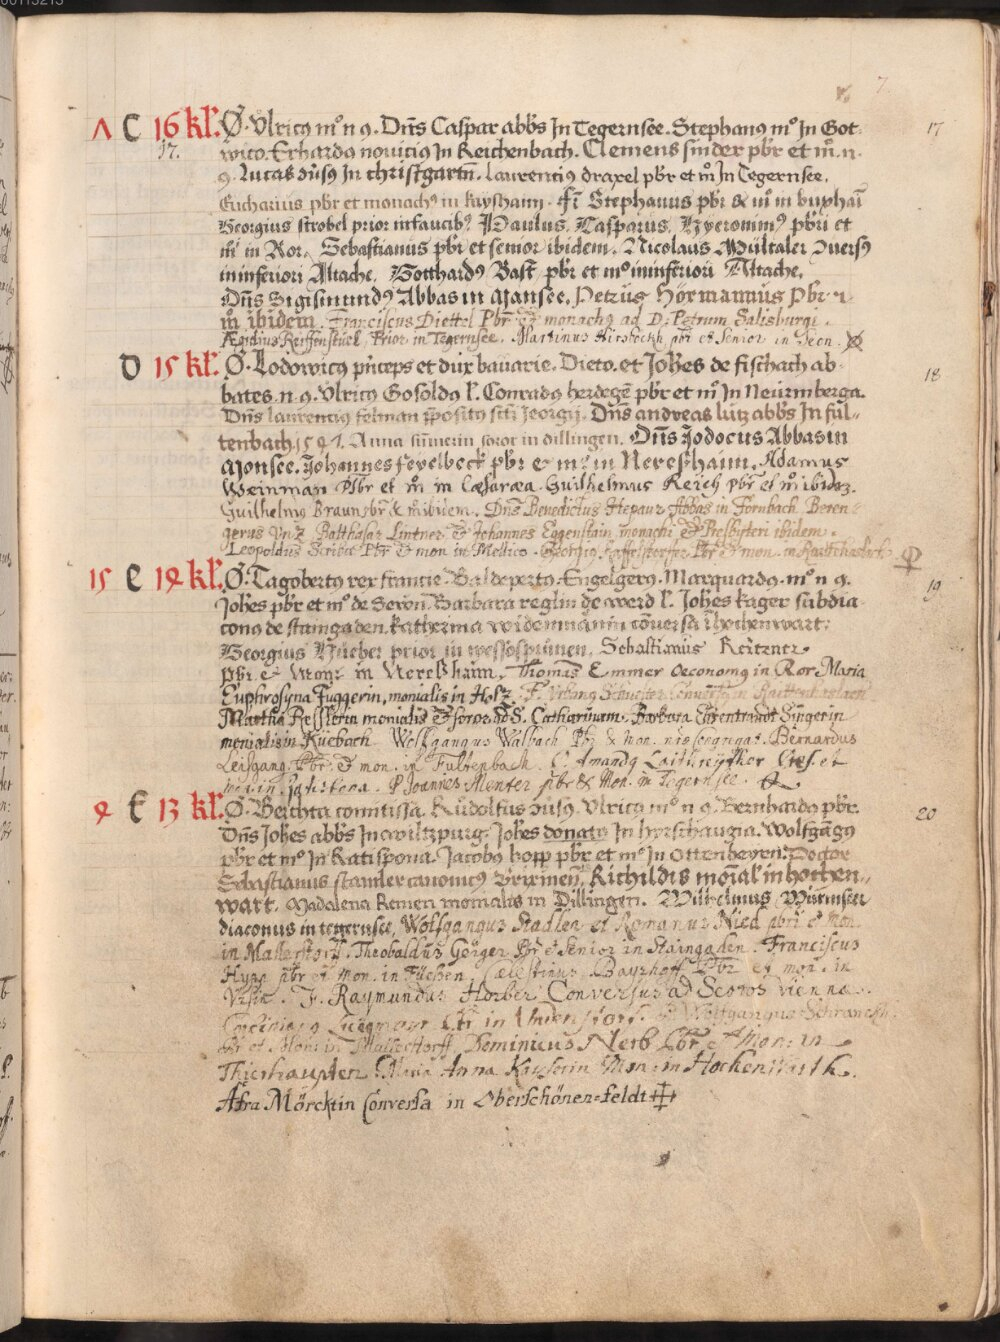 00115213
7.
A C 16 kl. Ø. Vlricꝯ mº n ꝯ. Dn̄s Caspar abb̄s In Tegernsee. Stephanꝯ mº In Got- 17
17. wico. Erhardꝯ nouiciꝯ In Reichenbach. Clemens sinder pb̄r et m̊. n.
ꝯ. Lucas dūsꝯ In christgartn̄. Laurentiꝯ draxel pb̄r et m̊ In Tegernsee.
Eucharius pb̄r et monachꝯ in kayshaim. Fr̄ Stephanus pb̄r & m̊ in
Georgius strobel prior in faucibꝯ Paulus, Casparus, Hyeronimꝯ pb̄ri et
m̊i in Ror. Sebastianus pb̄r et senior ibidem. Nicolaus Mültaler
in inferiori Altache. Gotthardꝯ Bast pb̄r et mº in inferiori Altache.
Dn̄s Sigismundꝯ Abbas in Mansee. Petrus Hörmannus Pb̄r
m̊ ibidem. Franciscus Diettel Pb̄r & monachꝯ ad D. Petrum Salisburgi.
Ægidius Reiffenstuel, Prior in Tegernsee. Martinus Hirsbeckh, pb̄r et Senior in Seon.
D 15 kl. Ø. Lodowicꝯ p̄nceps et dux bauarie. Dieto. et Joh̄es de fischach ab- 18
bates. n. ꝯ. Vlricꝯ Gosoldꝯ l. Conradꝯ herdegē pb̄r et m̊ In Neürmberga.
Dn̄s laurentiꝯ felman p̄positꝯ sc̄ti Jeorgij. Dn̄s andreas lutz abb̄s In ful-
tenbach, 1541. Anna sim̄erin soror in dillingen. Dn̄s Jodocus Abbas in
Monsee. Johannes fevelbeck pb̄r & m̊ in Nereshaim. Adamus
Weinman Pb̄r et m̊ in Cæsarea. Guilhelmus Reich pb̄r et m̊ ibidē.
Guilhelmꝯ Braun pb̄r & m̊ ibidem. Dn̄s Benedictus Hepaur Abbas in Formbach. Beren-
gerus Balthasar Lintner & Johannes Eggenstain monachi & Presbyteri ibidem.
Leopoldus Scriba Pb̄r & mon in Mellico. Georgiꝯ Pb̄r & mon. in Raittenhaslach
15 E 14 kl. Ø. Tagobertꝯ rex francie. Baldepertꝯ. Engelgerꝯ. Marquardꝯ. mº n ꝯ. 19
Joh̄es pb̄r et mº de Sewn. Barbara reglin de werd l. Joh̄es kager subdia-
conꝯ de staingaden. katherina widenmānin cōuersa I hochenwart.
Georgius Hueber prior in wessosprunen. Sebastianus Reitzner
pb̄r & Mon̄ in Nereshaim. Thomas Emmer Oeconomꝯ in Ror. Maria
Euphrosyna Fuggerin, monialis in Holz. F. Vrbanꝯ Schuester Conversꝯ in Raittenhaslach
Martha Resslerin monialis & soror ad S. Catharinam. Barbara Ehrentraudt Singerin
monialis in Küebach. Wolfgangus Walbach Pb̄r & Mon. Bernardus
Leisgang Pb̄r & mon. in Fultenbach. Amandꝯ et
mon. in P. Joannes Menter pb̄r & Mon. in Tegernsee.
4 F 13 kl. Ø. Berchta comitissa. Rudolfus dūsꝯ. Vlricꝯ mº n ꝯ. Bernhardꝯ pb̄r. 20
Dn̄s Joh̄es abb̄s In wiltzpurg. Joh̄es donatꝯ In horschaugia. Wolfgāgꝯ
pb̄r et mº In Ratispona. Jacobꝯ hopp pb̄r et mº In Ottenbeyren. Doctor
Sebastianus stamler canonicꝯ Brixinen̄. Richildis mōial in hochen-
wart. Madalena Remen monialis in Dillingen. Wilhelmus Würmseer
diaconus in tegernsee, Wolfgangus Stadler et Romanus Nied pb̄ri & mon
in Mallerstorff. Theobaldus Gerger Pb̄r & Senior in Staingaden. Franciscus
Hyza pb̄r et Mon. in Füessen. Cælestinus Bayrhoff Pb̄r et mon. in
Vrsin. F. Raymundus Horber Conversus ad Scotos viennæ.
in Wolfgangus Schranckh
Pb̄r et Mon: in Mallerstorff. Dominicus Nerb Pb̄r et Mon: in
Thierhaupten. Maria Anna Kayserin Mon: in Hochenwarth.
Afra Mörcktin Conversa in Oberschönen=feldt